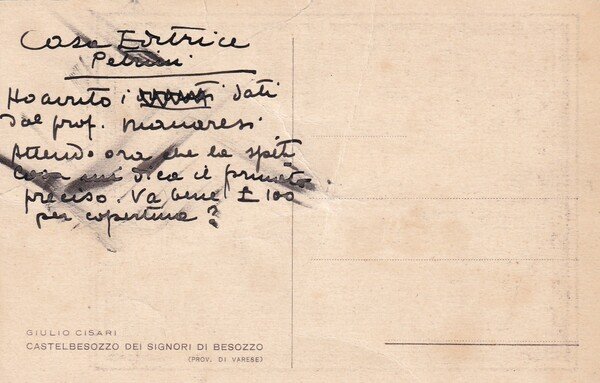 Casa Editrice
Petrini
Ho avuto i dati
dal prof. Manaresi
Attendo ora che la spett
Casa mi dica il formato
preciso. Va bene £ 100
per copertina?
GIULIO CISARI
CASTELBESOZZO DEI SIGNORI DI BESOZZO
(PROV. DI VARESE)